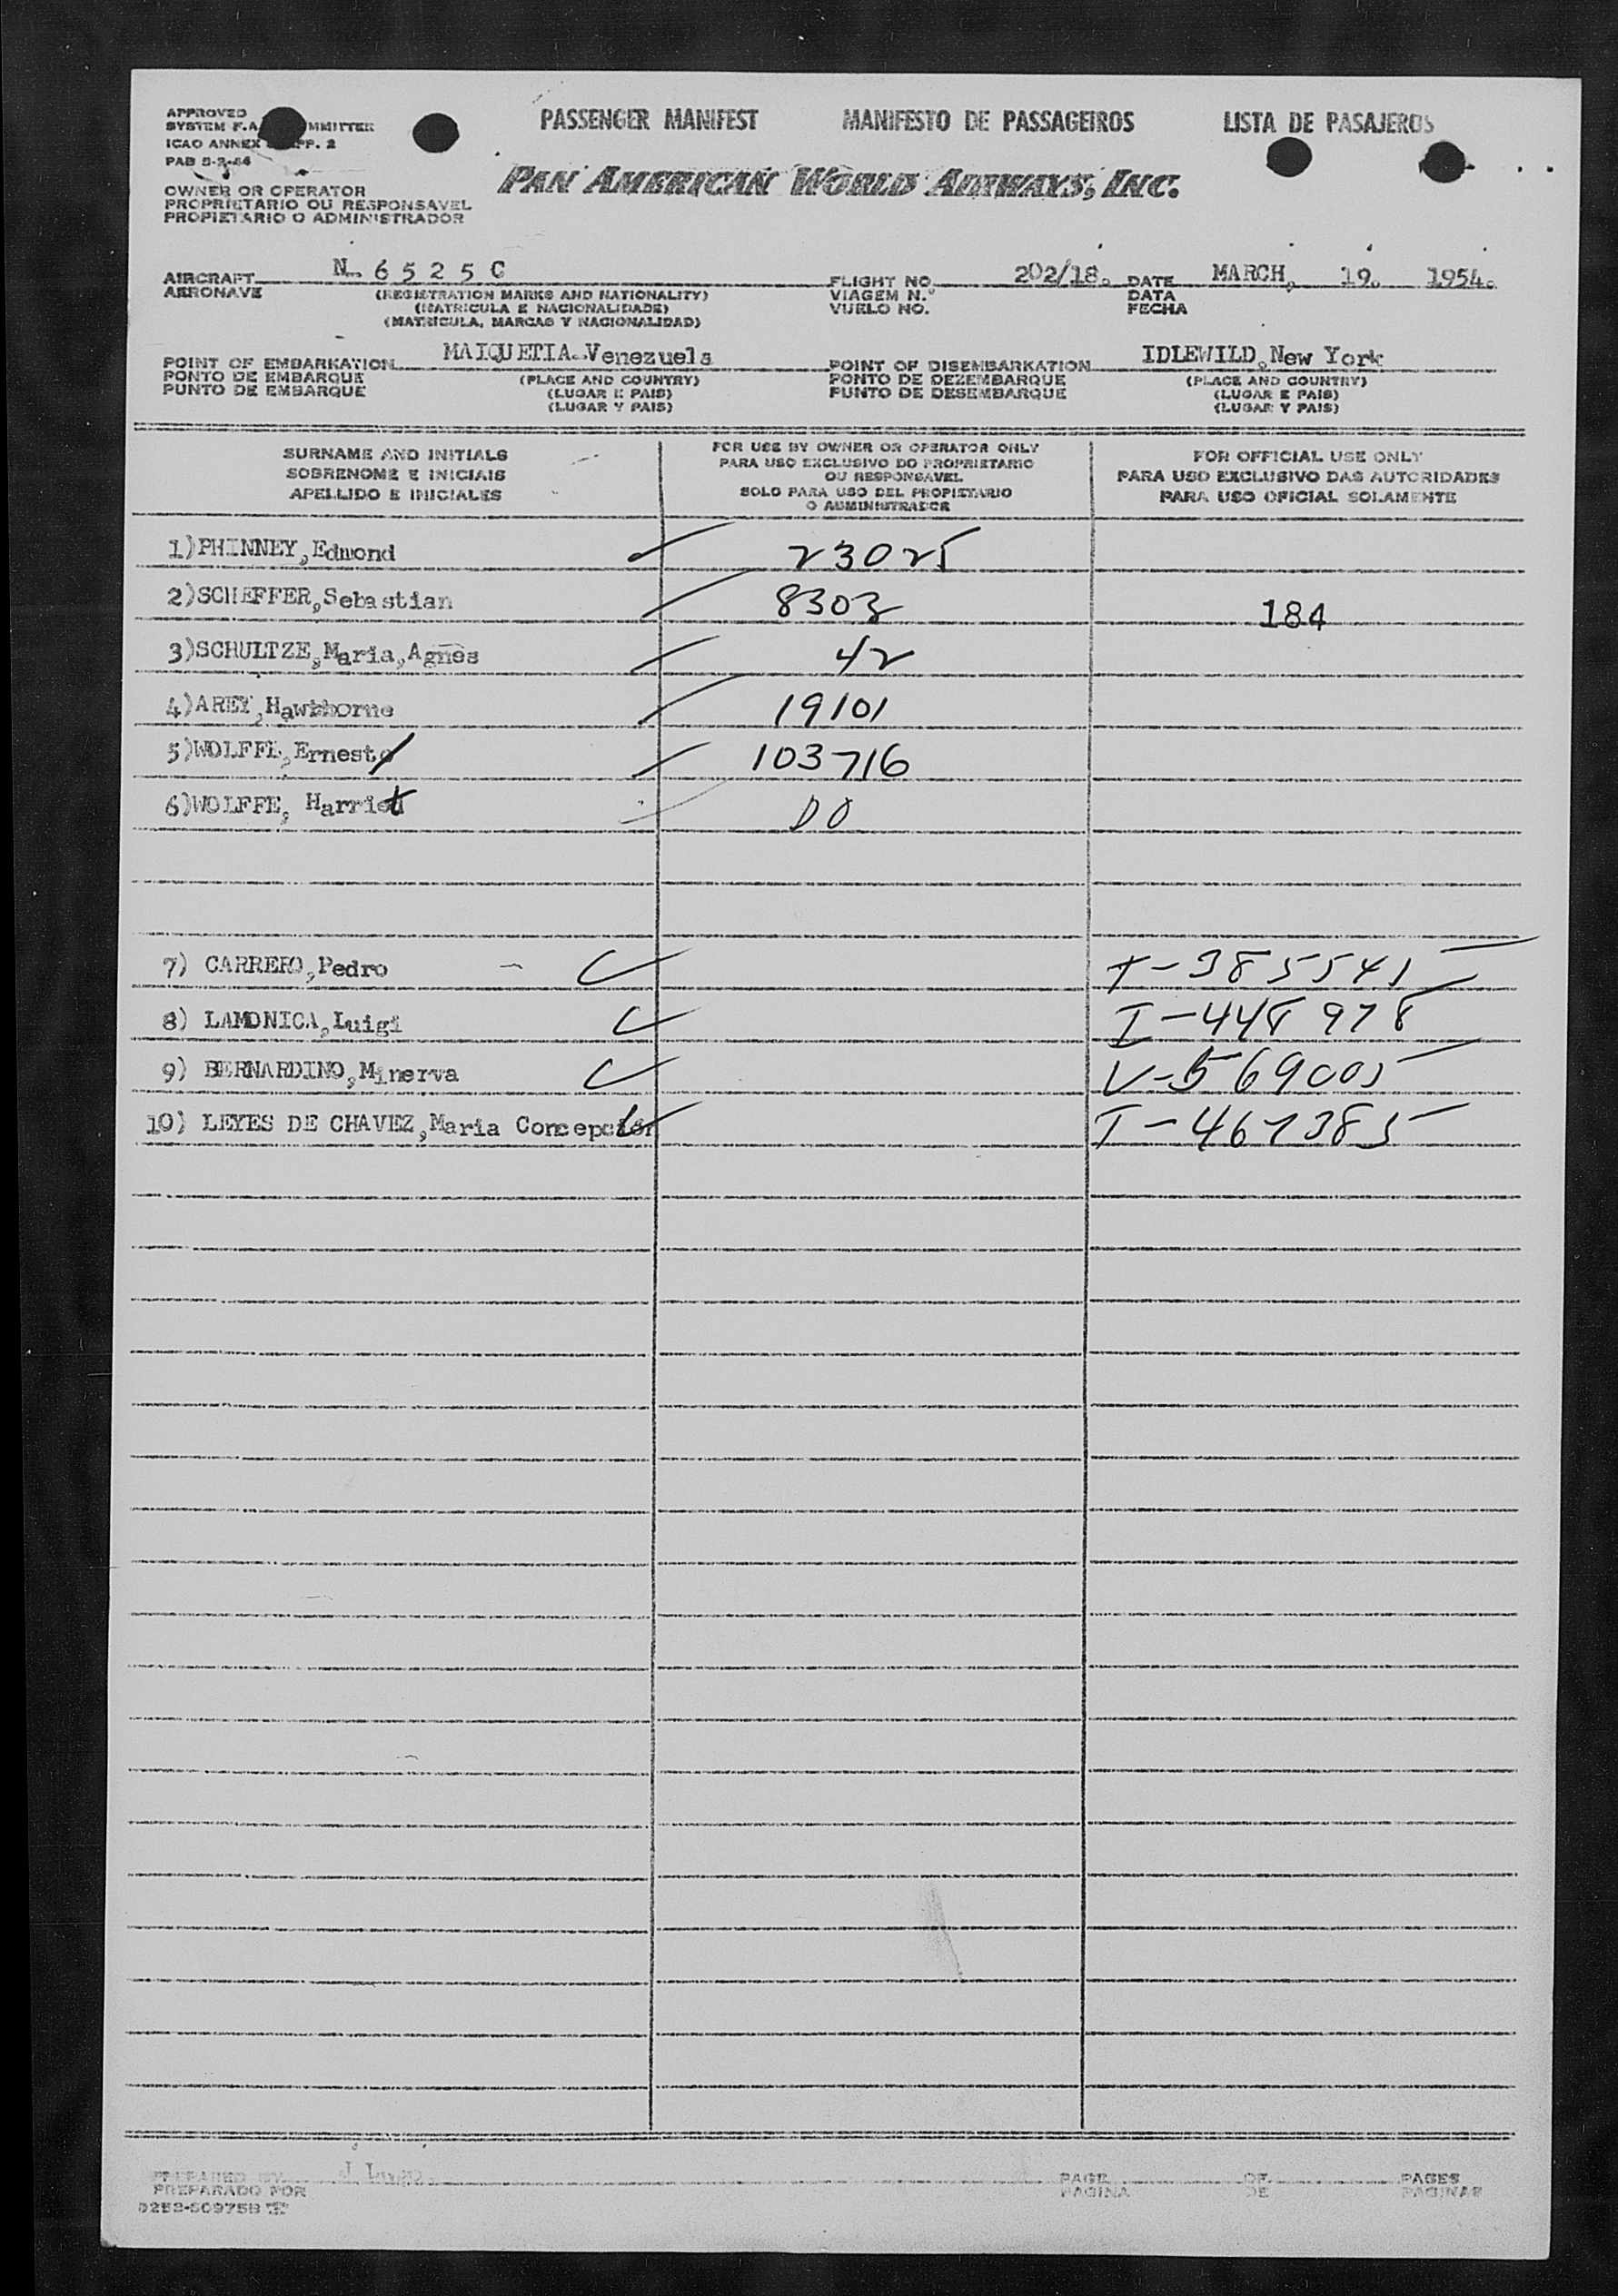 PASSENGER MANIFEST MANIFESTO DE PASSAGEIROS LISTA DE PASAJEROS
APPROVED
SYSTEM F.A. MMITTEE
ICAO ANNEX PP. 2
PAB 5-2-44
PAN AMERICAN WORLD AIRWAYS, INC.
OWNER OR OPERATOR
PROPRIETARIO OU RESPONSAVEL
PROPIETARIO O ADMINISTRADOR
AIRCRAFT N 6525C FLIGHT NO 202/18. DATE MARCH, 19. 1954.
AERONAVE (REGISTRATION MARKS AND NATIONALITY) VIAGEM N.º DATA
(MATRICULA E NACIONALIDADE) VUELO NO. FECHA
(MATRICULA, MARCAS Y NACIONALIDAD)
POINT OF EMBARKATION MAIQUETIA.Venezuela POINT OF DISEMBARKATION IDLEWILD,New York
PONTO DE EMBARQUE (PLACE AND COUNTRY) PONTO DE DEZEMBARQUE (PLACE AND COUNTRY)
PUNTO DE EMBARQUE (LUGAR E PAIS) PUNTO DE DESEMBARQUE (LUGAR E PAIS)
(LUGAR Y PAIS) (LUGAR Y PAIS)
SURNAME AND INITIALS
SOBRENOME E INICIAIS
APELLIDO E INICIALES
FOR USE BY OWNER OR OPERATOR ONLY
PARA USO EXCLUSIVO DO PROPRIETARIO
OU RESPONSAVEL
SOLO PARA USO DEL PROPIETARIO
O ADMINISTRADOR
FOR OFFICIAL USE ONLY
PARA USO EXCLUSIVO DAS AUTORIDADES
PARA USO OFICIAL SOLAMENTE
1)PHINNEY,Edmond 23025
2)SCHEFFER,Sebastian 8303 184
3)SCHULTZE,Maria,Agnes 42
4)AREY,Hawthorne 19101
5)WOLFFE,Ernesto 103716
6)WOLFFE, Harriet DO
7) CARRERO,Pedro T-385541
8) LAMONICA,Luigi I-448978
9) BERNARDINO,Minerva V-569005
10) LEYES DE CHAVEZ,Maria Concepcion T-467385
PREPARED BY PAGE OF PAGES
PREPARADO POR PAGINA DE PAGINAS